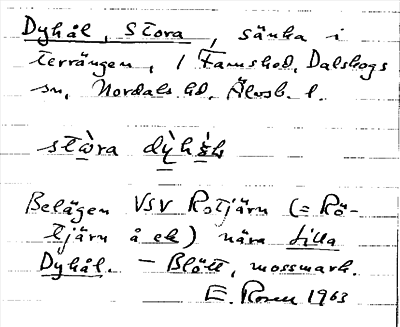 Dyhål, stora, sänka i
terrängen, i Famshed, Dalskogs
sn, Nordals hd, Älvsb. l.
Belägen VSV Rotjärn (= Rö-
tjärn å ek) nära Lilla
Dyhål. — Blött, mossmark.
E. Rosen 1963